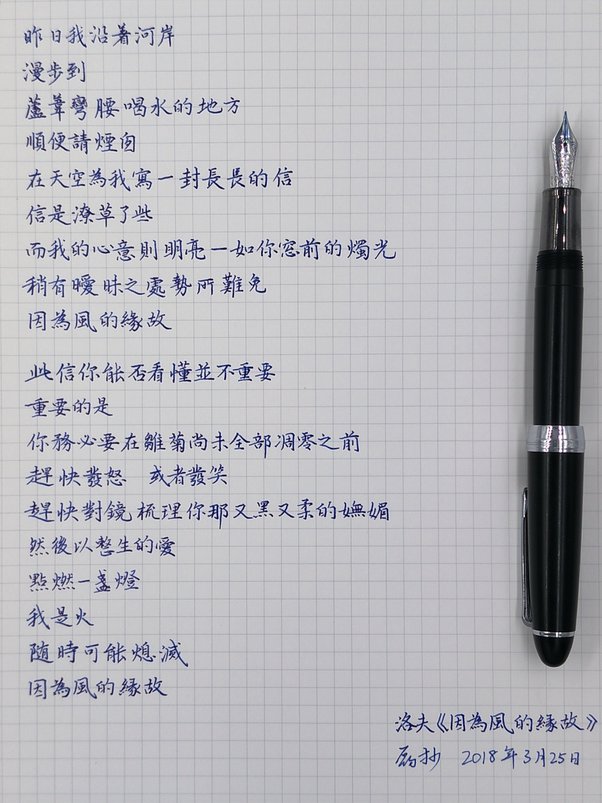 昨日我沿著河岸
漫步到
蘆葦彎腰喝水的地方
順便請煙囪
在天空為我寫一封長長的信
信是潦草了些
而我的心意則明亮一如你窓前的燭光
稍有曖昧之處勢所難免
因為風的緣故
此信你能否看懂並不重要
重要的是
你務必要在雛菊尚未全部凋零之前
趕快發怒　或者發笑
趕快對鏡梳理你那又黑又柔的嫵媚
然後以整生的愛
點燃一盞燈
我是火
隨時可能熄滅
因為風的緣故
洛夫《因為風的緣故》
抄 2018年3月25日